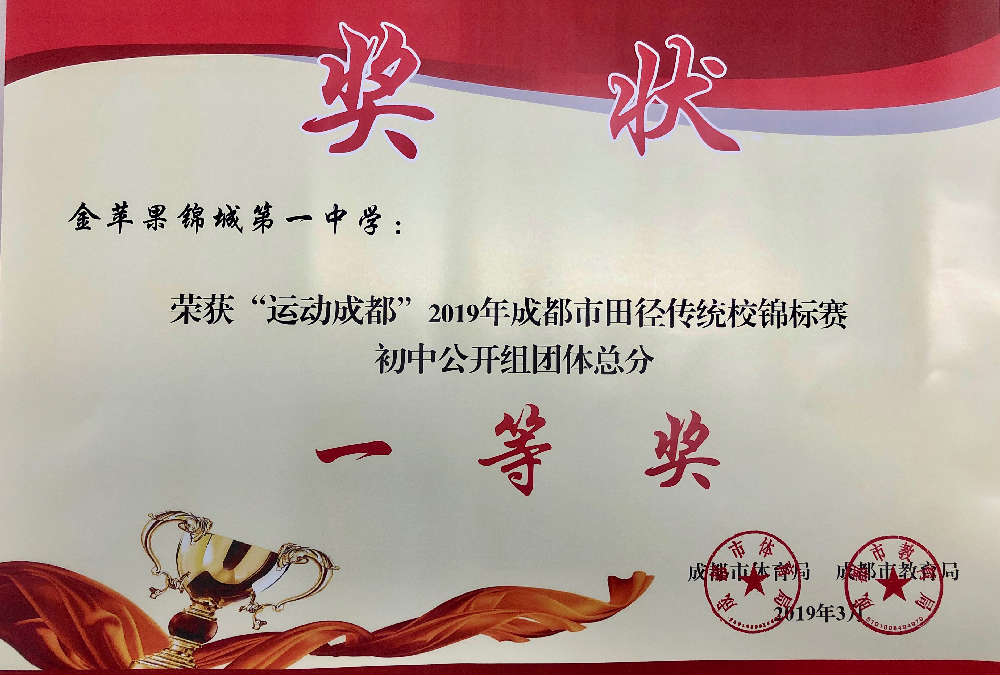 奖 状
金苹果锦城第一中学：
荣获“运动成都”2019年成都市田径传统校锦标赛
初中公开组团体总分
一 等 奖
成都市体育局 成都市教育局
2019年3月
成都市体育局
成都市教育局